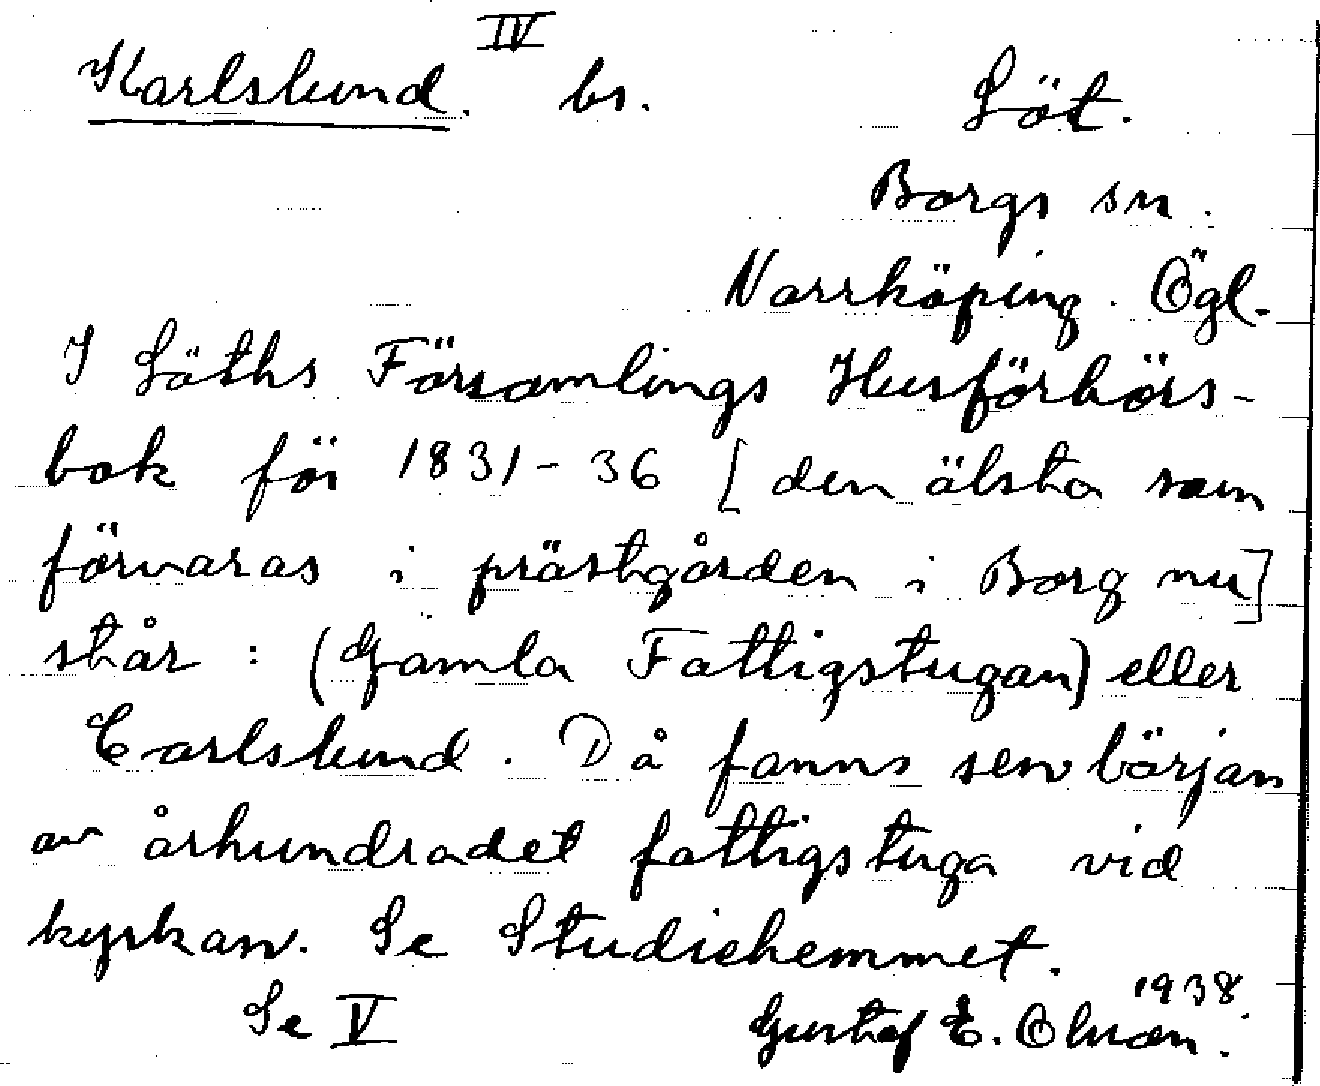 IV
Karlslund. bs. Löt.
Borgs sn.
Norrköping. Ögl.
I Löths Församlings Husförhörs-
bok för 1831-36 [den älsta som
förvaras i prästgården i Borg nu]
står : (Gamla Fattigstugan) eller
Carlslund. Då fanns sen början
av århundradet fattigstuga vid
kyrkan. Se Studiehemmet.
Se V 1938
Gustaf E.